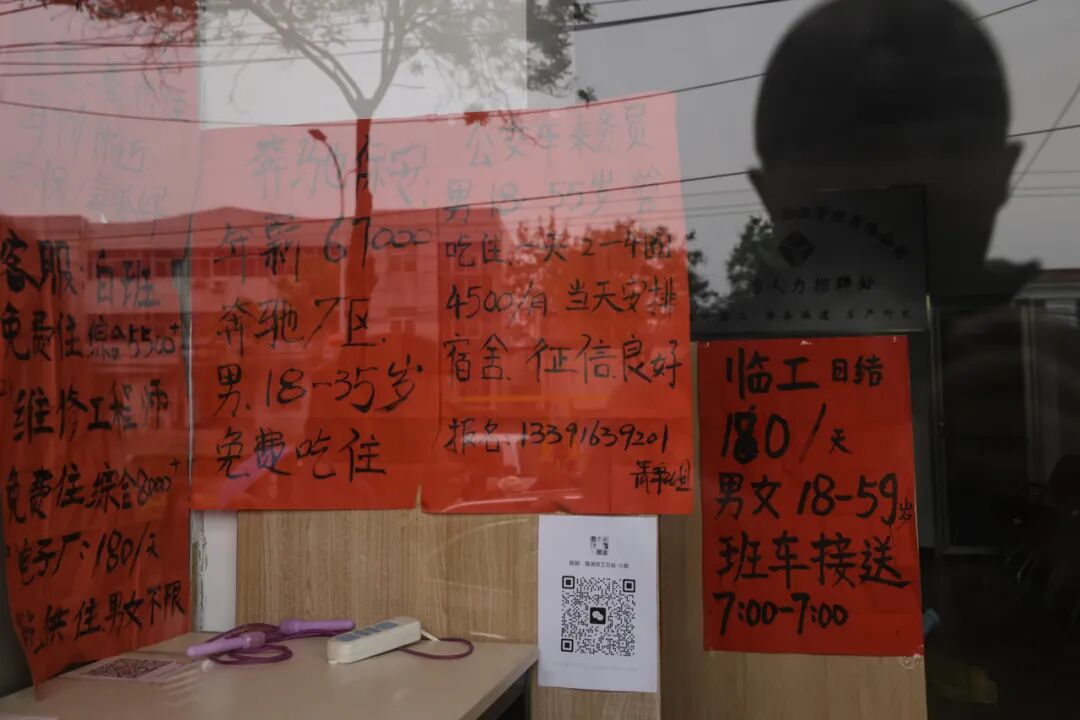 客服:白班
免费住 综合5500+
维修工程师
免费住 综合8000+
电子厂:180/天
供住 男女不限
奔驰保安:
年薪 67000
奔驰7区
男.18-35岁
免费吃住
公交车乘务员
男 18-55岁
吃住.一天2-4圈
4500/月 当天安排
宿舍.征信良好
报名.13391639201
人力招聘处
劳务派遣 生产外包
临工 日结
180/天
男女 18-59岁
班车接送
7:00-7:00